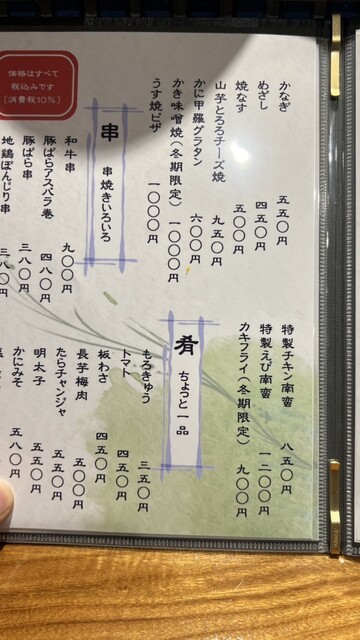 かなぎ 五五〇円
めざし 四五〇円
焼なす 五〇〇円
山芋とろろチーズ焼 九五〇円
かに甲羅グラタン 六〇〇円
かき味噌焼(冬期限定) 一〇〇〇円
うす焼ピザ 一〇〇〇円
串 串焼きいろいろ
和牛串 九〇〇円
豚ばらアスパラ巻 四八〇円
豚ばら串 三八〇円
地鶏ぼんじり串 三八〇円
価格はすべて
税込みです
(消費税10%)
特製チキン南蛮 八五〇円
特製えび南蛮 一二〇〇円
カキフライ(冬期限定) 九〇〇円
肴 ちょっと一品
もろきゅう 三五〇円
トマト 四五〇円
板わさ 四五〇円
長芋梅肉 五〇〇円
たらチャンジャ 五五〇円
明太子 五五〇円
かにみそ 五八〇円